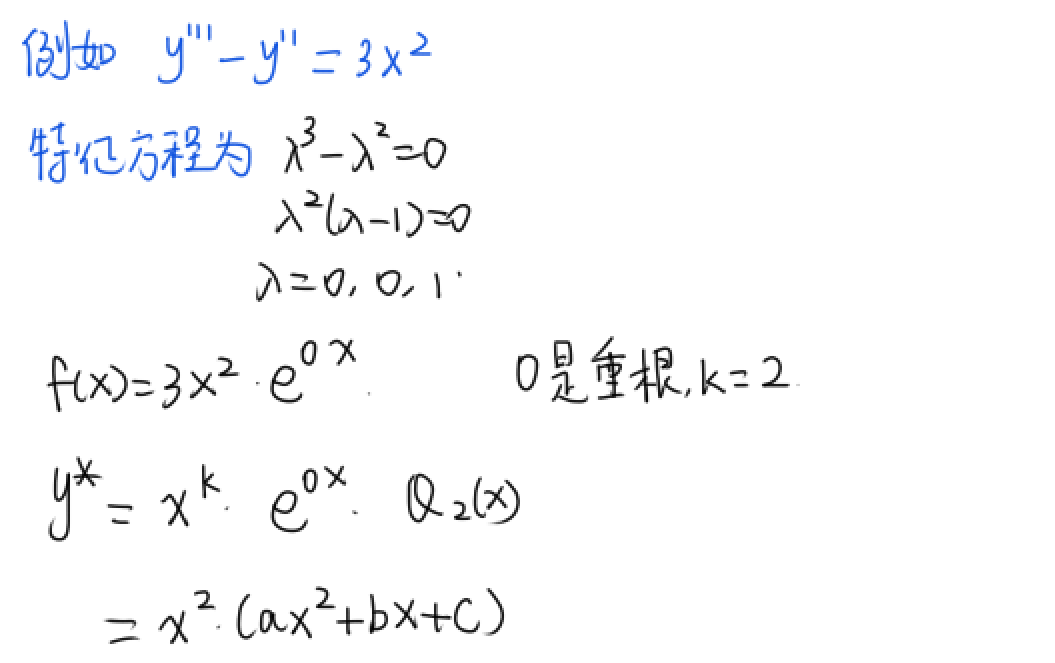 例如 y''' - y'' = 3x²
特征方程为 λ³-λ²=0
λ²(λ-1)=0
λ=0, 0, 1
f(x)=3x²·e^{0x} 0是重根,k=2
y* = x^k · e^{0x} · Q₂(x)
= x²·(ax²+bx+c)